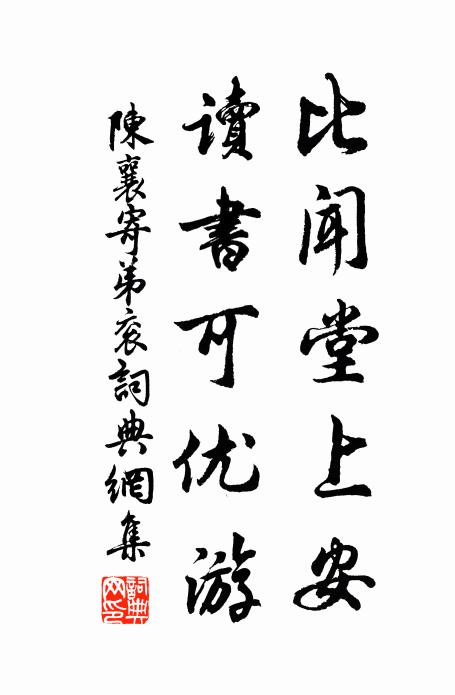 比闻堂上安
讀書可优游
陳襄寄弟衮詞典網集
詞典網印